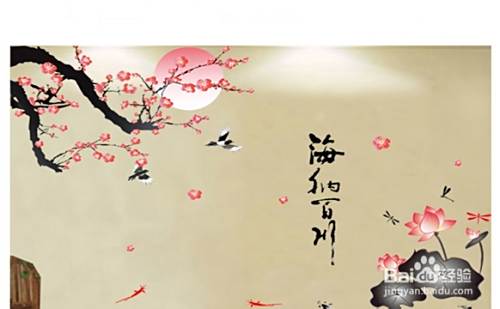 海纳百川
Baidu经验
jingyan.baidu.com